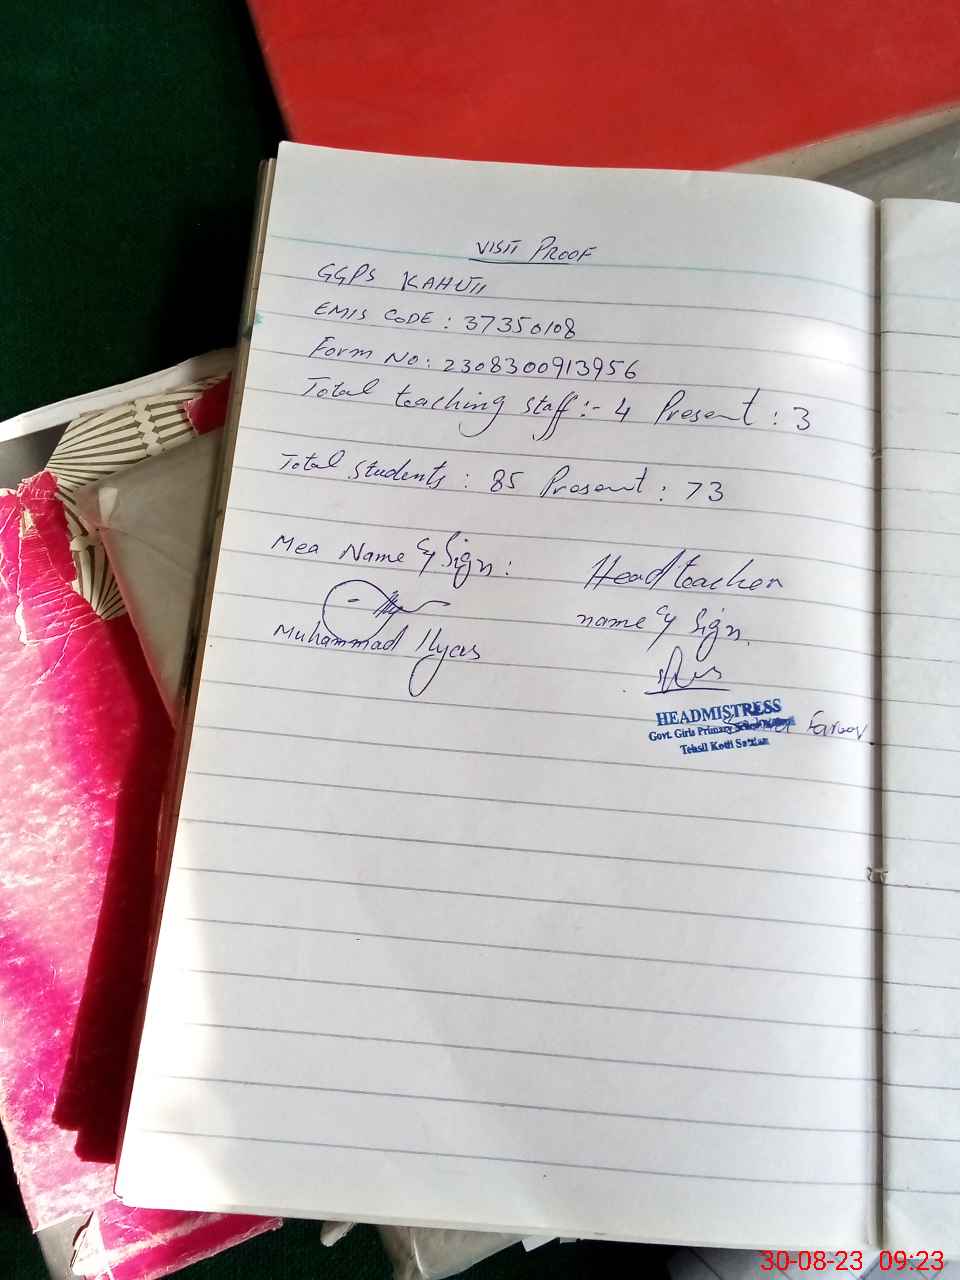 VISIT PROOF
GGPS KAHUTI
EMIS CODE : 37350108
Form No: 2308300913956
Total teaching staff :- 4 Present : 3
Total students : 85 Present : 73
Mea Name & Sign :
Muhammad Ilyas
Headteacher
name & Sign.
HEADMISTRESS
Govt. Girls Primary
Tehsil Kotli Sattian
30-08-23 09:23